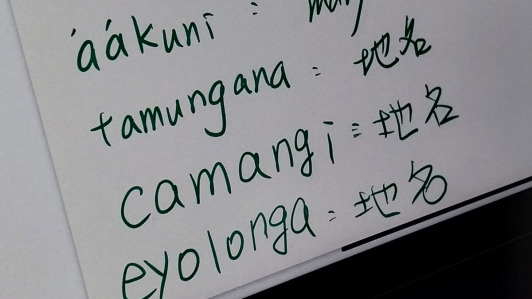 áákuni :
tamungana : 地名
camangi = 地名
eyolonga : 地名